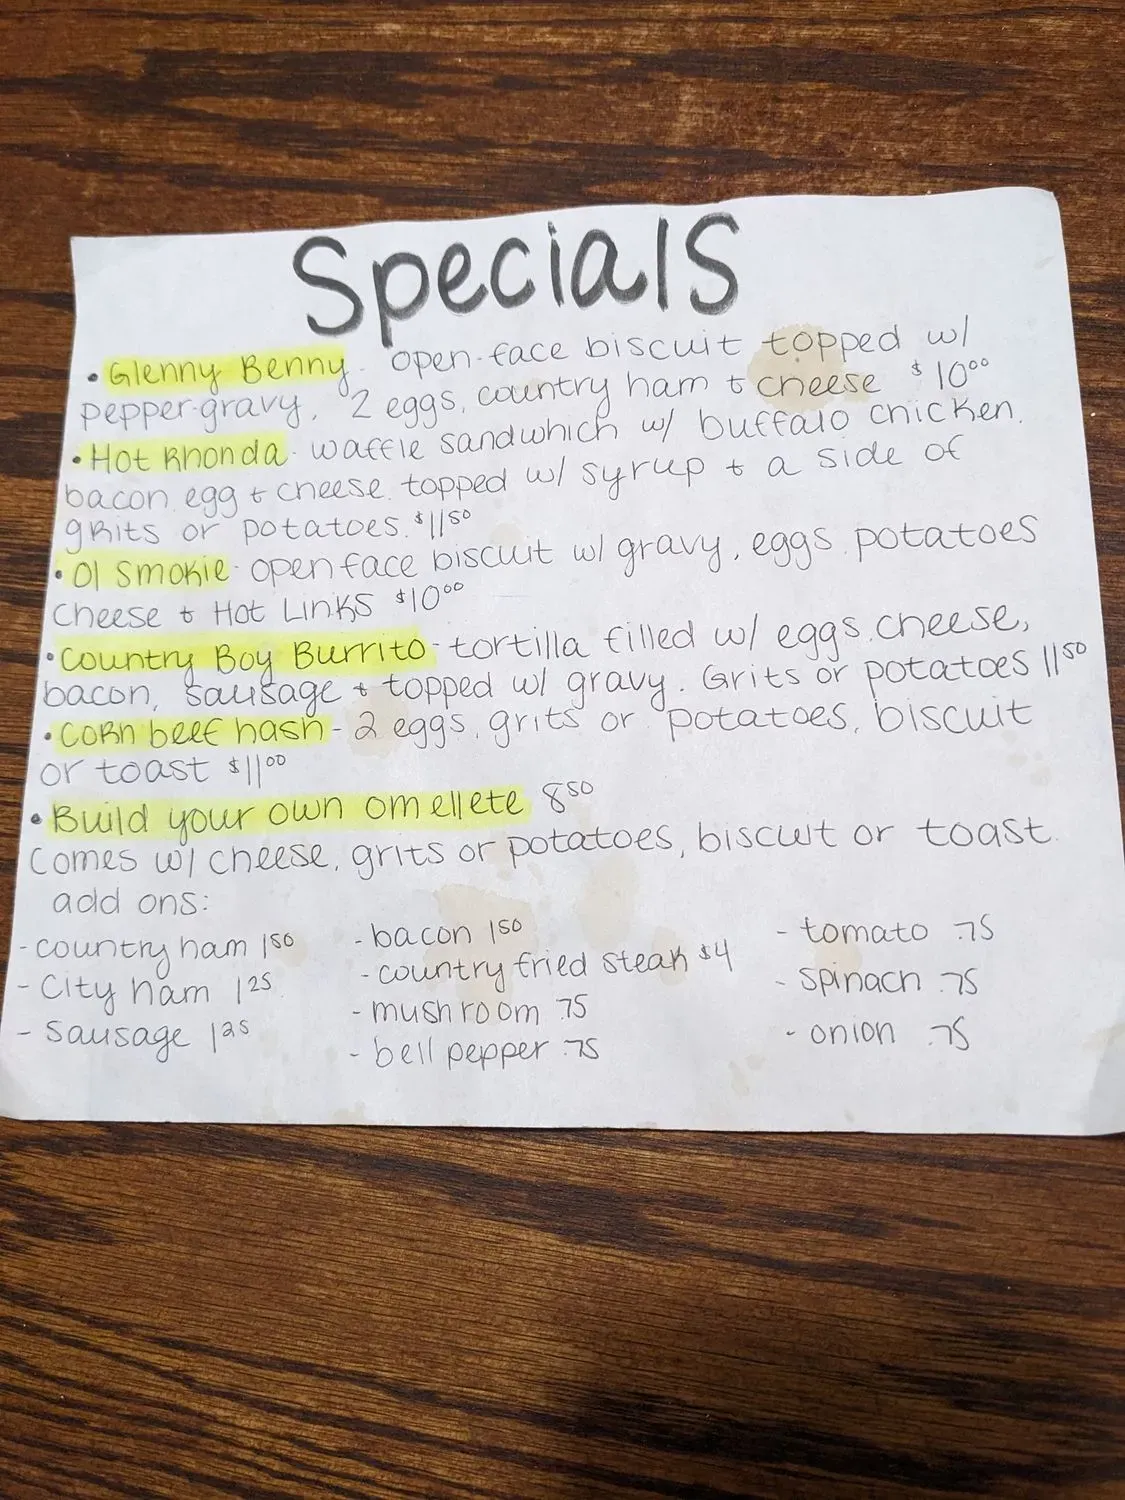 Specials
• Glenny Benny - open-face biscuit topped w/
pepper-gravy, 2 eggs, country ham & cheese $10.00
• Hot Rhonda - waffle sandwhich w/ buffalo chicken,
bacon, egg & cheese topped w/ syrup & a side of
grits or potatoes. $11.50
• Ol Smokie - open face biscuit w/ gravy, eggs, potatoes
cheese & Hot Links $10.00
• Country Boy Burrito - tortilla filled w/ eggs, cheese,
bacon, sausage & topped w/ gravy. Grits or potatoes 11.50
• Corn beef hash - 2 eggs, grits or potatoes, biscuit
or toast $11.00
• Build your own omellete 8.50
Comes w/ cheese, grits or potatoes, biscuit or toast.
add ons:
- country ham 1.50
- City ham 1.25
- Sausage 1.25
- bacon 1.50
- country fried steak $4
- mushroom .75
- bell pepper .75
- tomato .75
- spinach .75
- onion .75